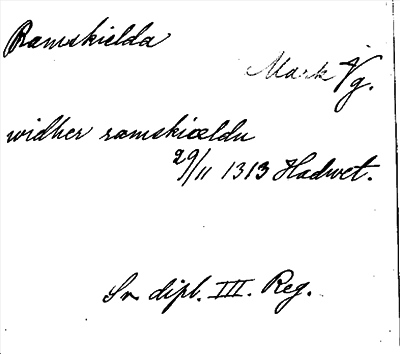 Ramskielda
Mark Vg.
widher ramskiældu
29/11 1313 Hadwet.
Sv. dipl. III. Reg.